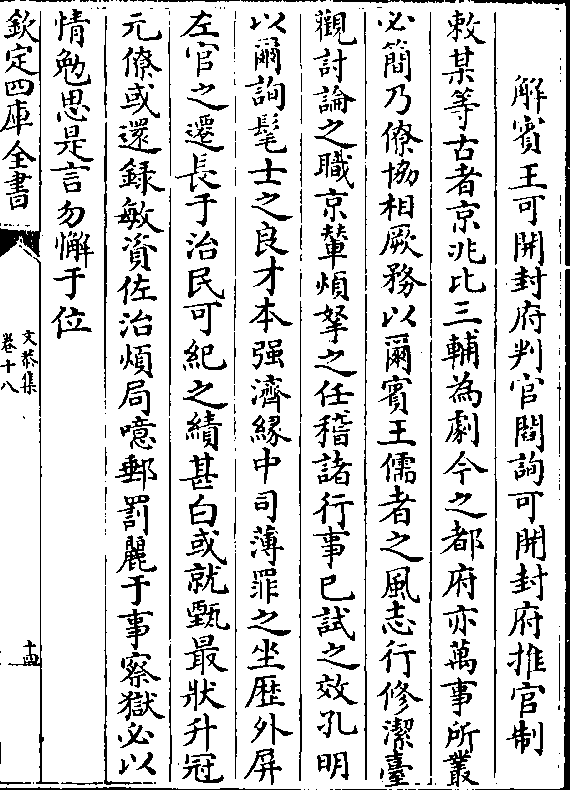 解賓王可開封府判官閻詢可開封府推官制
敕某等古者京兆比三輔為劇今之都府亦萬事所叢
必簡乃僚協相厥務以爾賓王儒者之風志行修潔臺
觀討論之職京輦煩拏之任稽諸行事已試之效孔明
以爾詢髦士之良才本强濟緣中司薄罪之坐歴外屏
左官之遷長于治民可紀之績甚白或就甄最狀升冠
元僚或還録敏資佐治煩局噫郵罰麗于事察獄必以
情勉思是言勿懈于位
欽定四庫全書
文恭集
卷十八
十四